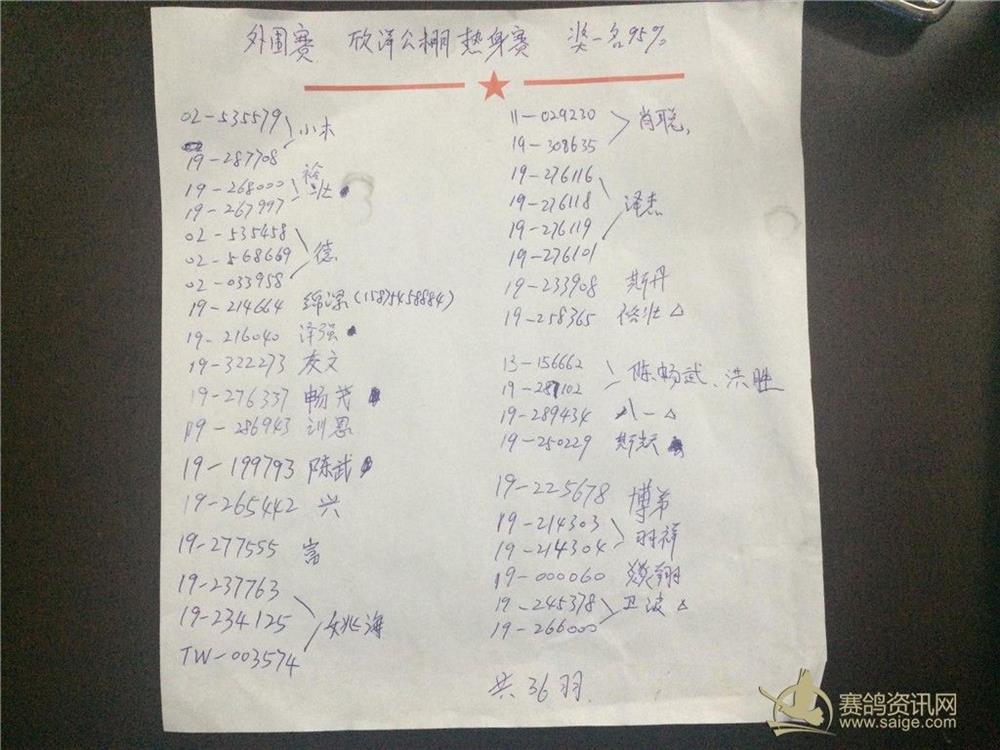 外围赛 欣洋公棚热身赛 奖一名95%
02-535579
小木
19-287708
19-268000
裕壮
19-267997
02-535458
02-568669
德
02-033958
19-214664 绵深(15875458884)
19-216040 泽强
19-322273 友文
19-276337 畅茂
19-286943 训恩
19-199793 陈武
19-265442 兴
19-277555 富
19-237763
19-234125 姚海
TW-003574
11-029230
肖聪
19-308635
19-276116
19-276118 泽杰
19-276119
19-276101
19-233908 斯丹
19-258365 裕壮△
13-156662
陈畅武、洪胜
19-287102
19-289434 八一△
19-250229
19-225678 博弟
19-214303
羽祥
19-214304
19-000060 翔
19-245378 卫波△
19-266000
共36羽
赛鸽资讯网
www.saige.com